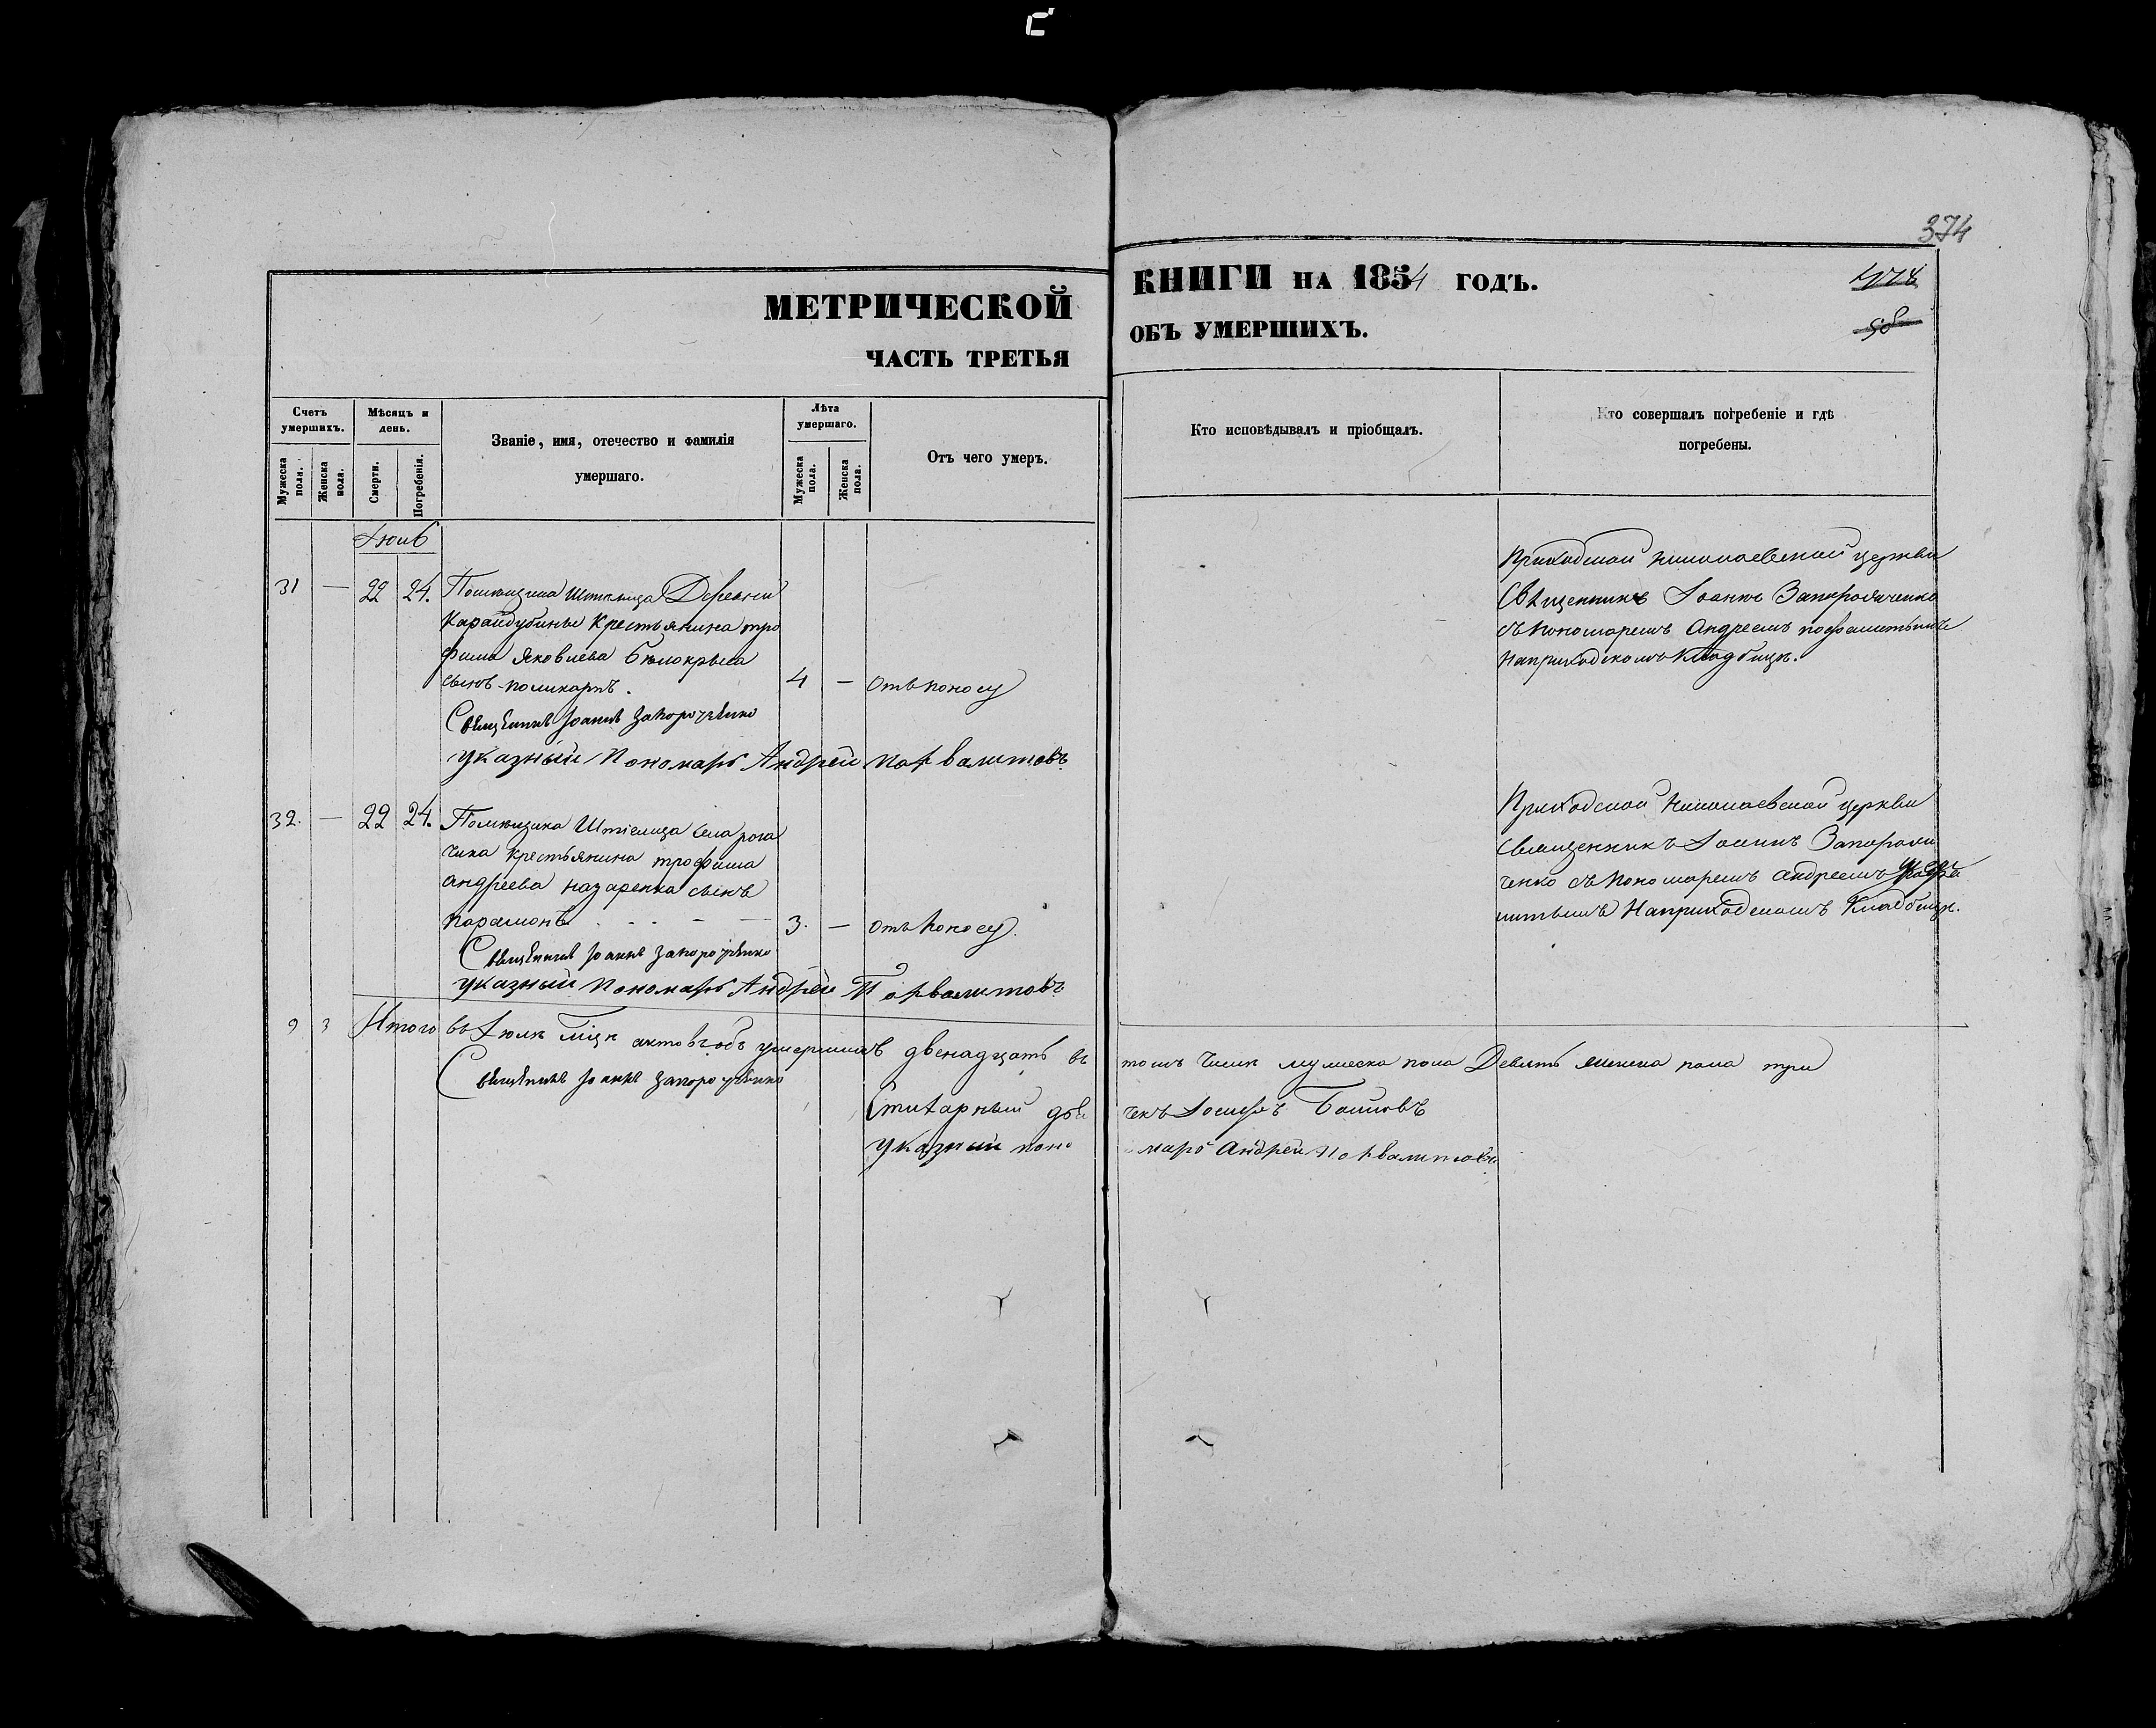 374
МЕТРИЧЕСКОЙ КНИГИ НА 1854 ГОДЪ.
ЧАСТЬ ТРЕТЬЯ ОБЪ УМЕРШИХЪ.
Счетъ умершихъ.
Мужеска пола.
Женска пола.
Мѣсяцъ и день.
Смерти.
Погребенія.
Званіе, имя, отечество и фамилія
умершаго.
Лѣта умершаго.
Мужеска пола.
Женска пола.
Отъ чего умеръ.
Кто исповѣдывалъ и пріобщалъ.
Кто совершалъ погребеніе и гдѣ
погребены.
31 — 22 24.
Деревни
крестьянина тро
фима Яковлева Бѣлокрыса
сынъ поликарпъ. 4 — отъ поносу
Священникъ Іоаннъ Запорожченко
указный Пономарь Андрей
Приходской николаевской церкви
Священникъ Іоаннъ
съ пономаремъ Андреемъ
на приходскомъ кладбищѣ.
32. — 22 24.
Помѣщика села рога
чика крестьянина трофима
андреева назаренка сынъ
парамонъ 3. — отъ поносу.
Священникъ Іоаннъ Запорожченко
указный Пономарь Андрей
Приходской николаевской церкви
священникъ Іоаннъ Запорож
ченко съ пономаремъ андреемъ
на приходскомъ кладбищѣ.
9 3 Итого въ Іюлѣ мцѣ актовъ объ умершихъ двенадцать въ томъ числѣ мужеска пола Девять женска пола три
Священникъ Іоаннъ Запорожченко
Стихарный дьячекъ Іосифъ
указный пономарь Андрей